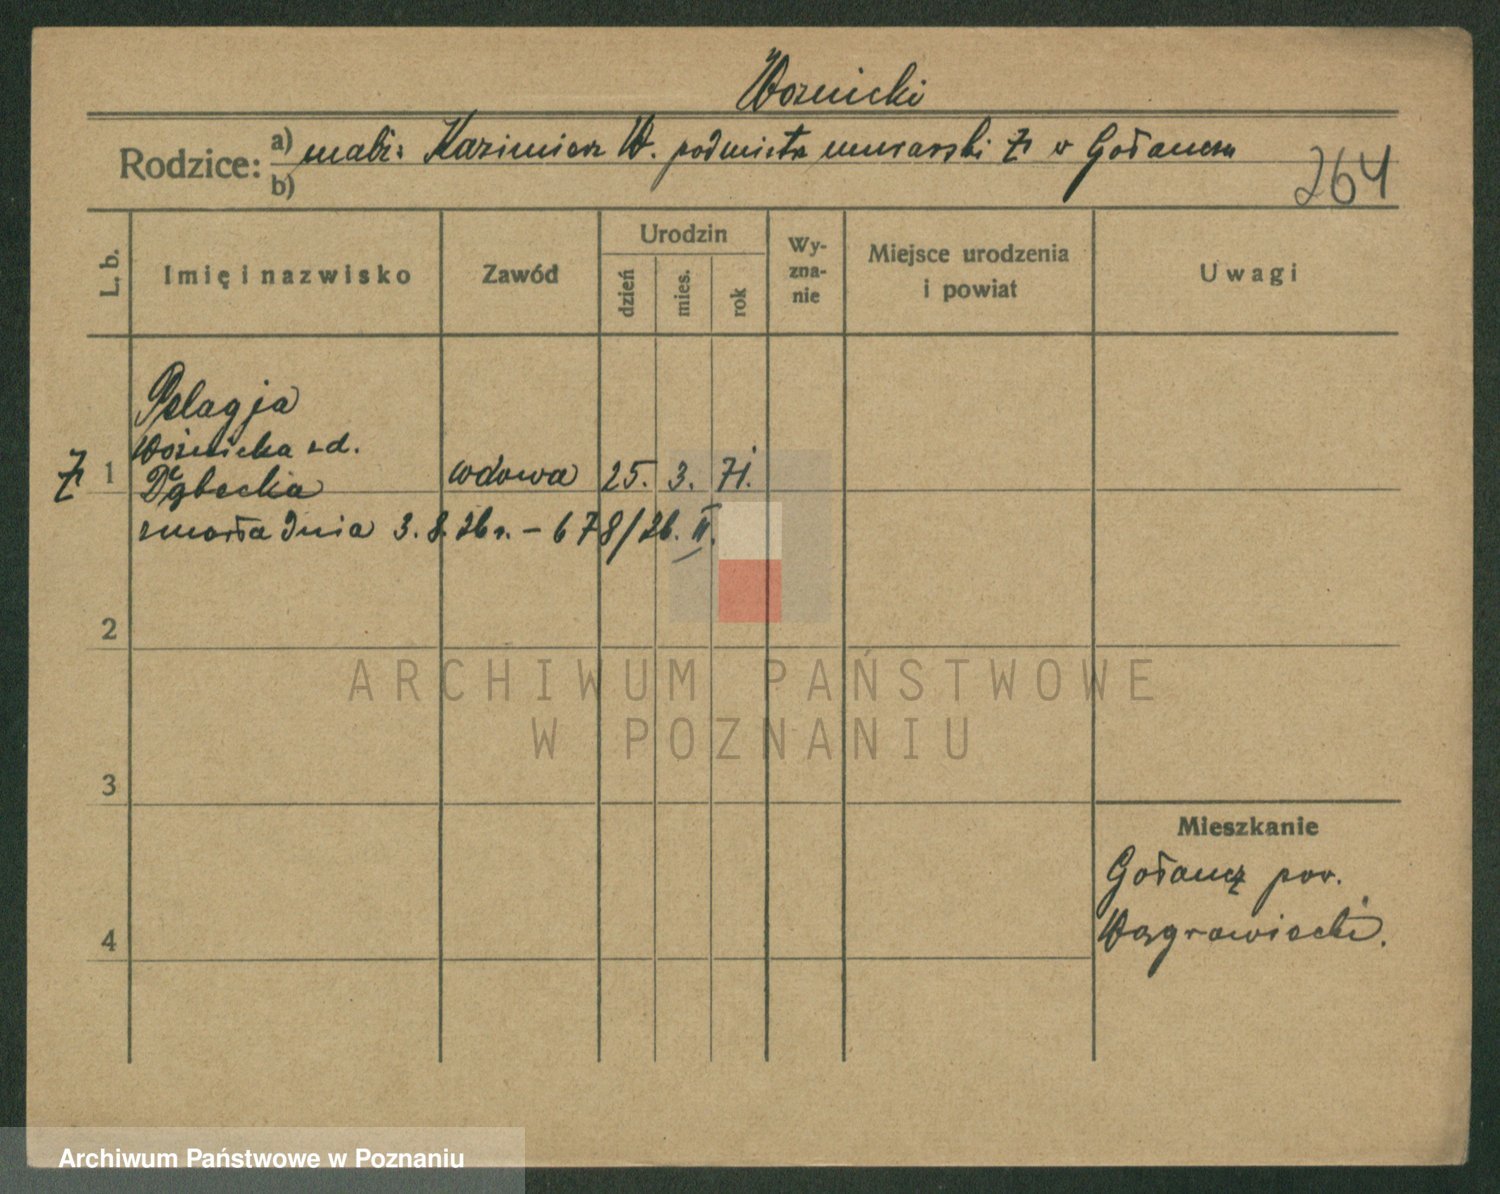 Woznicki
Rodzice: a) małż: Kazimierz W. podmistrz murarski † w Gołańczu
b)
264
L. b.
Imię i nazwisko
Zawód
Urodzin
dzień
mies.
rok
Wy-
zna-
nie
Miejsce urodzenia
i powiat
Uwagi
Pelagja
Woźnicka zd.
† 1 Dąbecka wdowa 25. 3. 71.
zmarła dnia 3.8.26 r. – 678/26. II.
2
ARCHIWUM PAŃSTWOWE
W POZNANIU
3
Mieszkanie
Gołańcz pow.
Wągrowiecki.
4
Archiwum Państwowe w Poznaniu